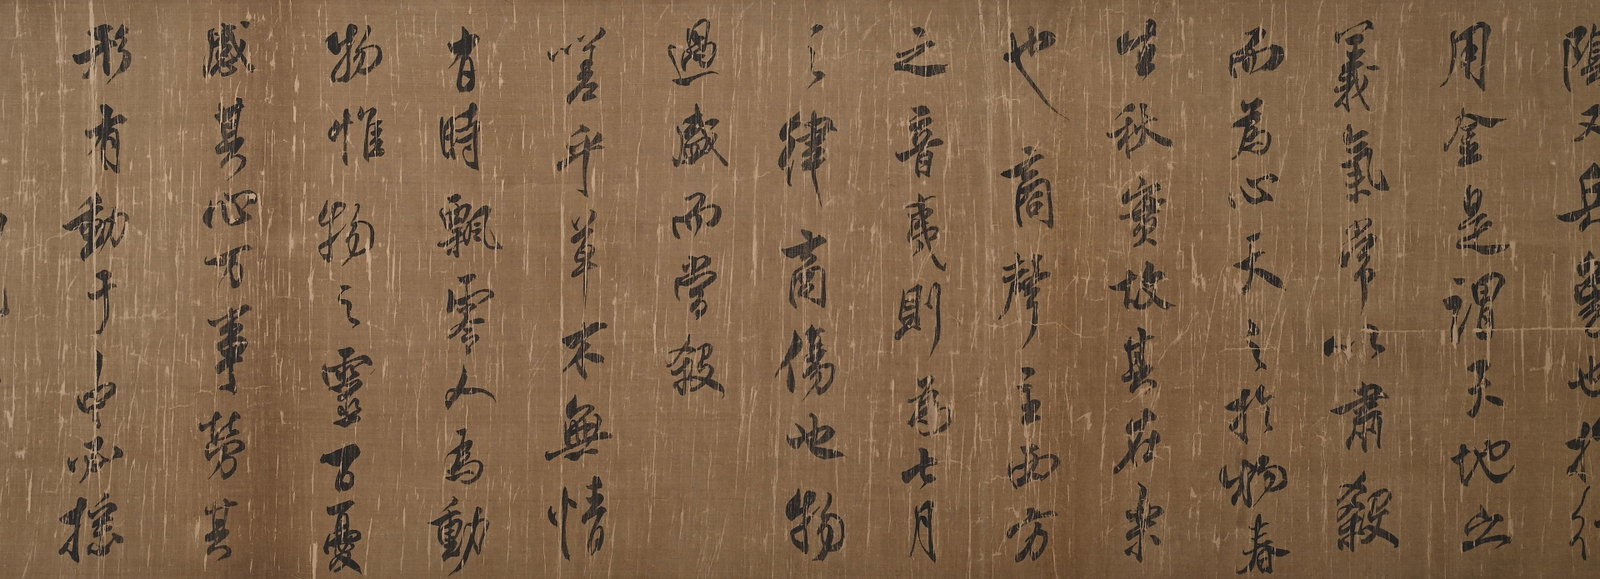 陰又兵象也於行
用金是謂天地之
義氣常以肅殺
而為心天之於物春
生秋實故其在樂
也商聲主西方
之音夷則為七月
之律商傷也物
過盛而當殺
嗟乎草木無情
有時飄零人為動
物惟物之靈百憂
感其心万事勞其
形有動于中必搖